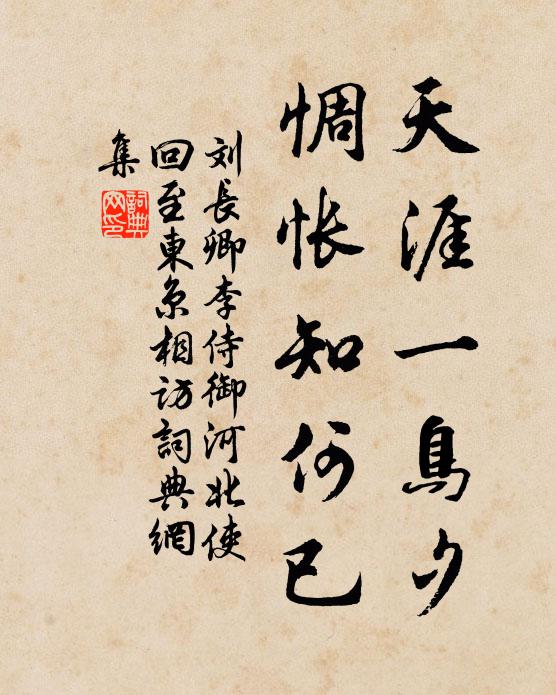 天涯一鳥夕
惆怅知何已
刘長卿李侍御河北使
回至東京相訪詞典網
集
詞典
网印